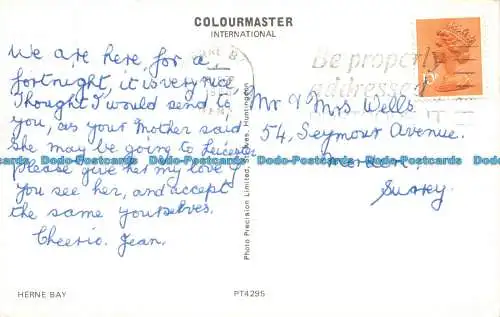 COLOURMASTER
INTERNATIONAL
We are here, for a
fortnight, it is very nice,
Thought I would send to
you, as your Mother said
She may be going to Leicester
Please give her my love if
you see her, and accept
the same yourselves.
Cheerio. Jean.
Be properly
addressed
Mr & Mrs Wells.
54, Seymour Avenue.
Morden.
Surrey.
Photo Precision Limited, St. Ives, Huntingdon
Dodo-Postcards Dodo-Postcards Dodo-Postcards Dodo-Postcards Dodo-Postcards
HERNE BAY
PT4295